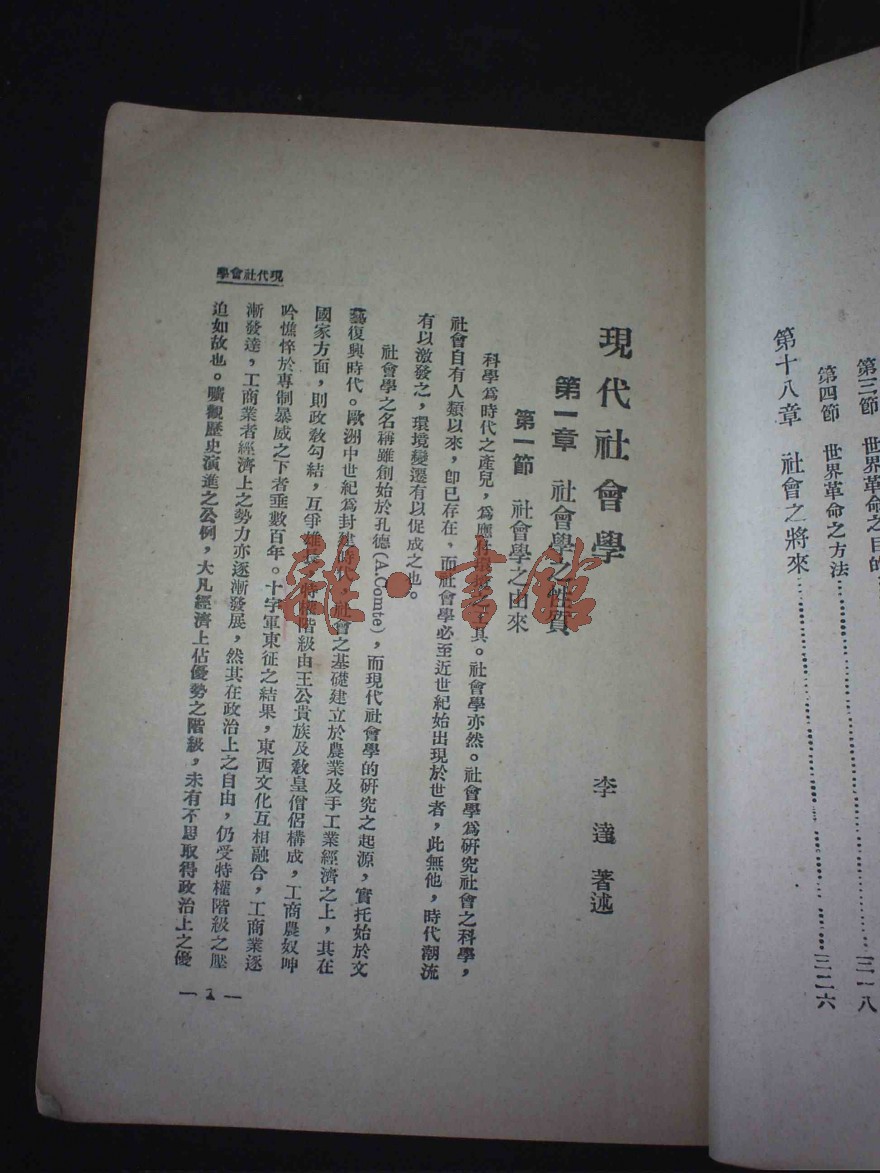 第三節　世界革命之目的
第四節　世界革命之方法……三一八
第十八章　社會之將來……三二六
現代社會學
李達著述
第一章　社會學之性質
第一節　社會學之由來
科學爲時代之產兒，爲應付環境之工具。社會學亦然。社會學爲研究社會之科學，
社會自有人類以來，卽已存在，而社會學必至近世紀始出現於世者，此無他，時代潮流
有以激發之，環境變遷有以促成之也。
社會學之名稱雖創始於孔德(A.Comte)，而現代社會學的研究之起源，實托始於文
藝復興時代。歐洲中世紀爲封建時代，社會之基礎建立於農業及手工業經濟之上，其在
國家方面，則政敎勾結，互爭雄長，特權階級由王公貴族及敎皇僧侶構成，工商農奴呻
吟憔悴於專制暴威之下者垂數百年。十字軍東征之結果，東西文化互相融合，工商業逐
漸發達，工商業者經濟上之勢力亦逐漸發展，然其在政治上之自由，仍受特權階級之壓
迫如故也。曠觀歷史演進之公例，大凡經濟上佔優勢之階級，未有不思取得政治上之優
現代社會學
— 1 —
雜·書館